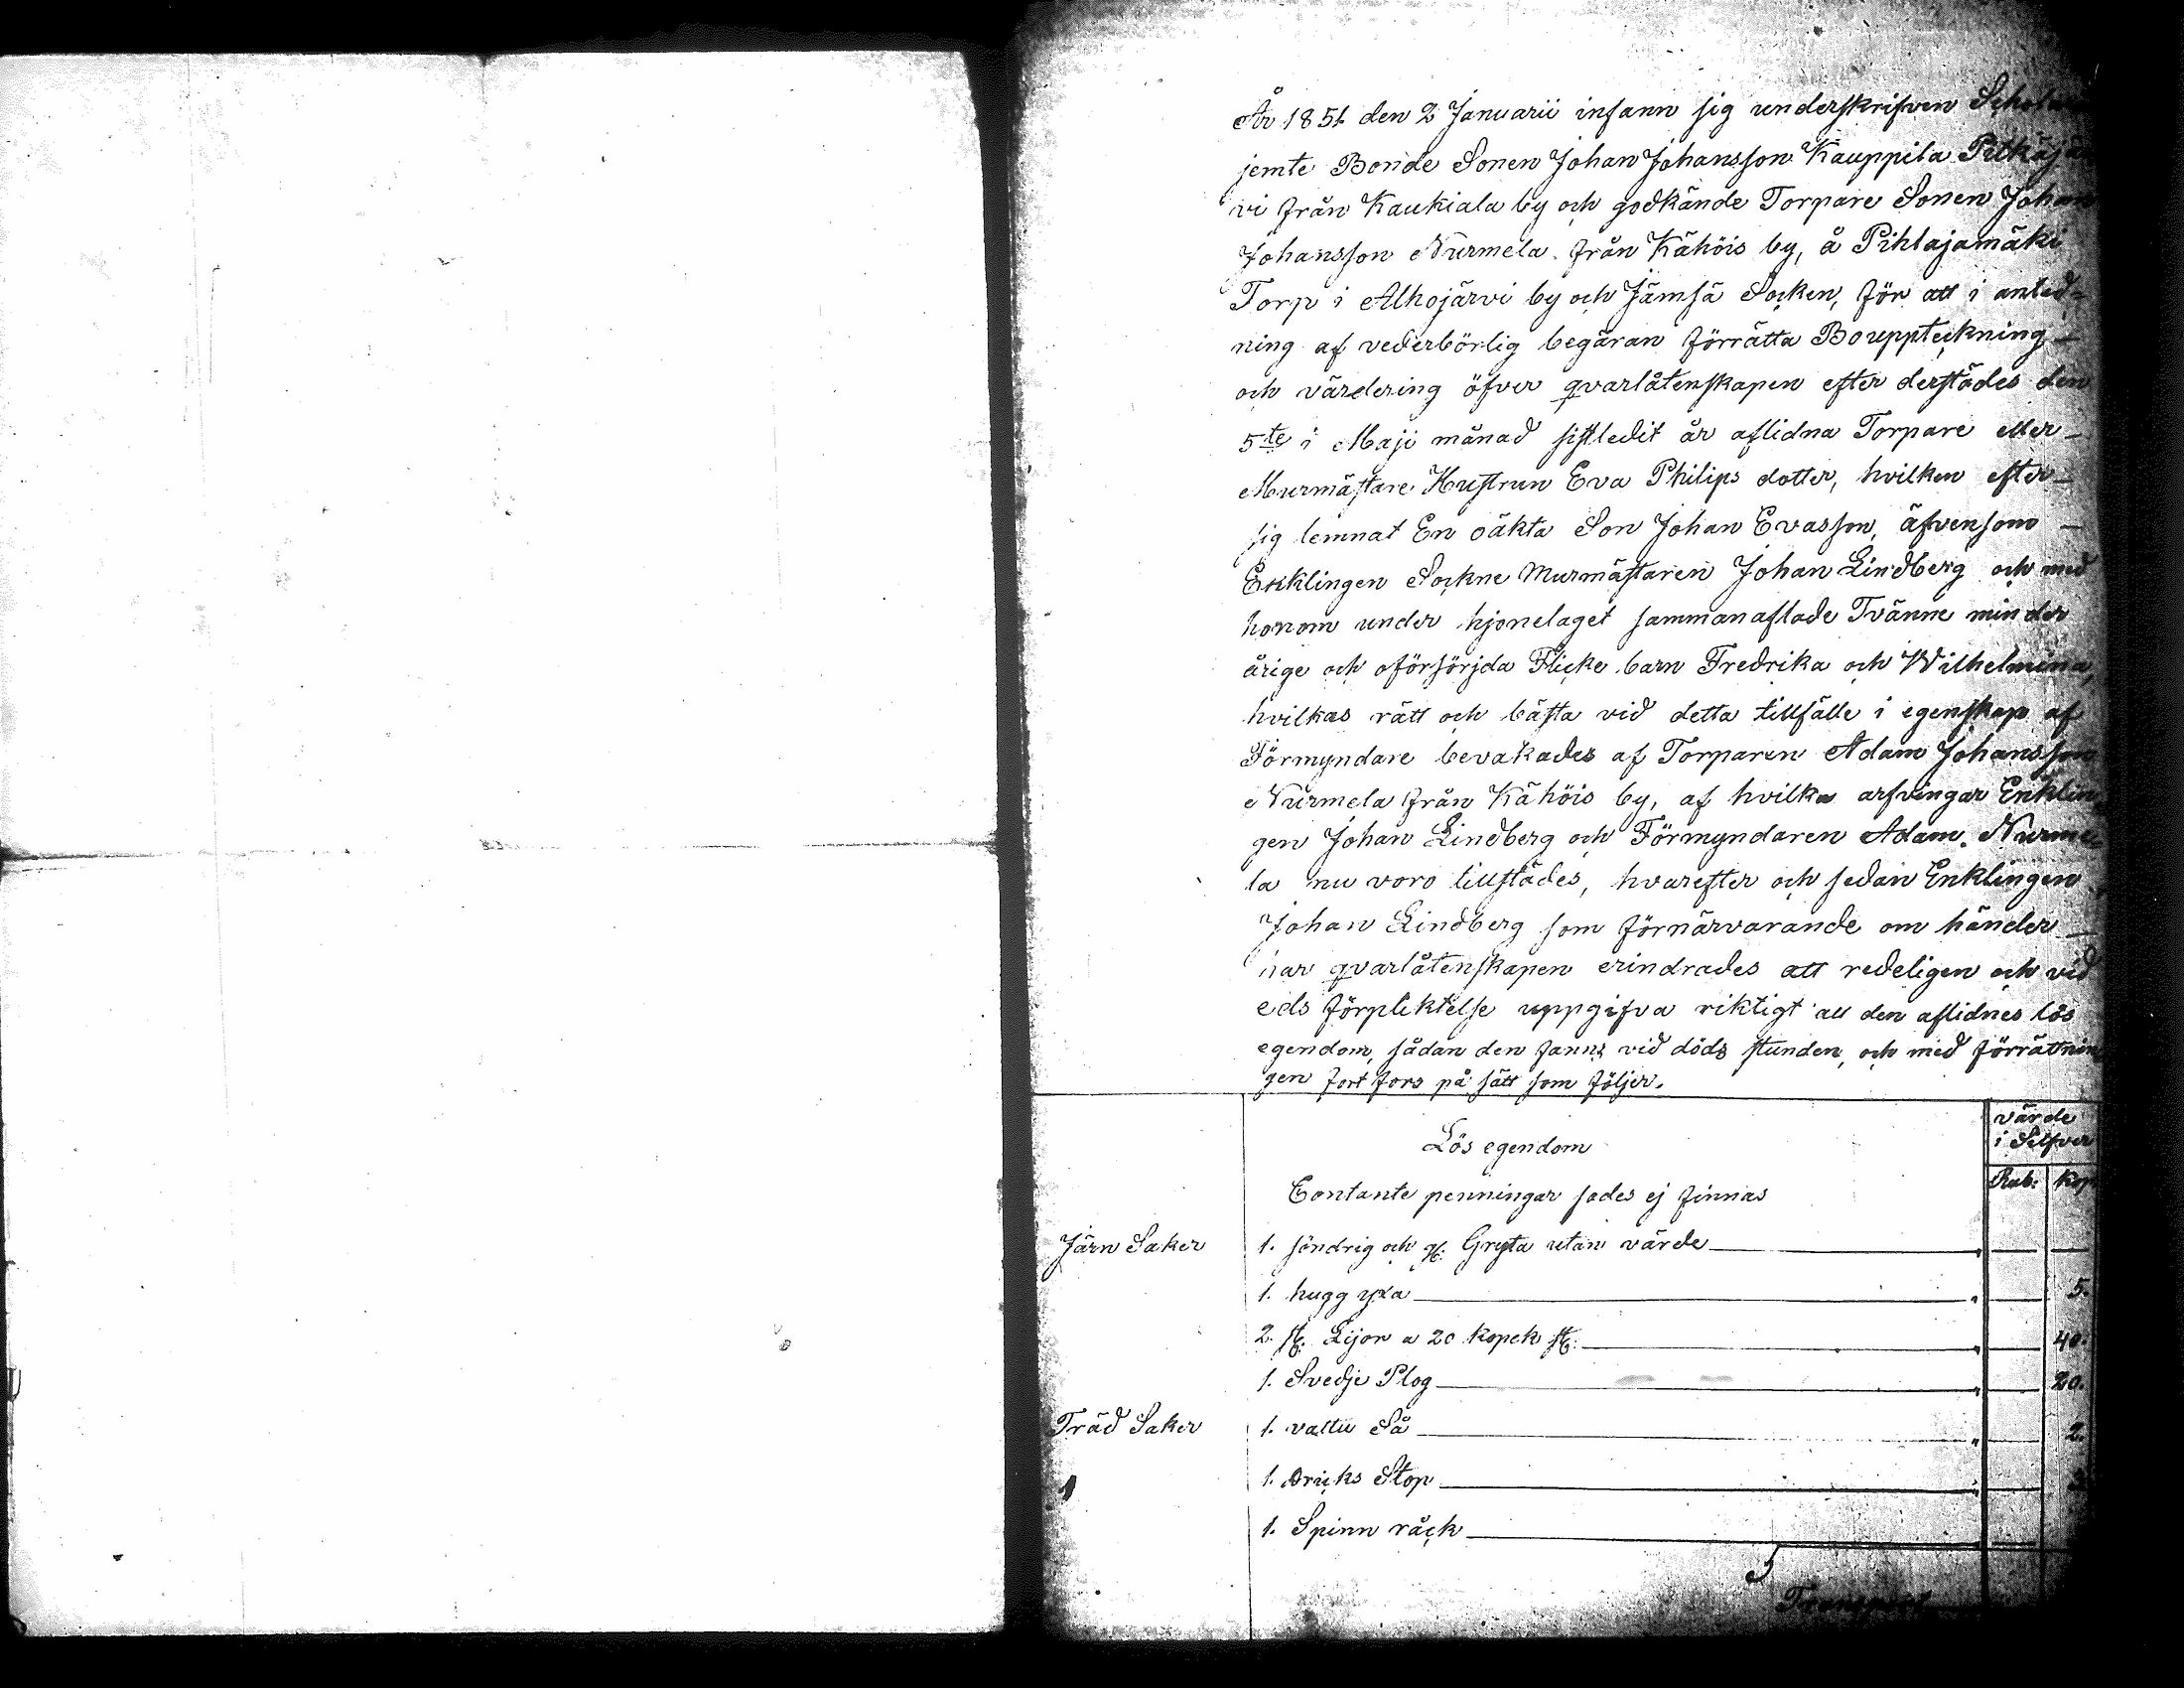 År 1851 den 2 Januarii infann sig underskrifven
jemte Bonde Sonen Johan Johansson Kauppila Pitkäjär
vi från Kaukiala by och godkände Torpare Sonen Johan
Johansson Nurmela från Kähöis by, å Pihlajamäki
Torp i Alhojärvi by och Jämsä Socken, för att i anled-
ning af vederbörlig begäran förrätta Bouppteckning
och värdering öfver qvarlåtenskapen efter derstädes den
5te i Maji månad sistledit år aflidna Torpare eller
Murmästare Hustrun Eva Philips dotter, hvilken efter
sig lemnat En oäkta Son Johan Evasson, äfvensom
Enklingen Sockne Murmästaren Johan Lindberg och med
honom under hjonelaget sammanaflade Tvänne minder
årige och oförsörjda Flicke barn Fredrika och Wilhelmina,
hvilkas rätt och bästa vid detta tillfälle i egenskap af
Förmyndare bevakades af Torparen Adam Johansson
Nurmela från Kähöis by, af hvilka arfvingar Enklin
gen Johan Lindberg och Förmyndaren Adam Nurme
la nu voro tillstädes, hvarefter och sedan Enklingen
Johan Lindberg som förnärvarande om händer
har qvarlåtenskapen erindrades att redeligen och vid
eds förpliktelse uppgifva riktigt all den aflidnes lös
egendom, sådan den fanns vid döds stunden, och med förrättnin
gen fort fors på sätt som följer.
värde
i Silfver
Lös egendom
Rub: Kop
Contante penningar sades ej finnas
Järn Saker 1. söndrig och gl: Gryta utan värde
1. hugg yxa 5.
2. st. Lijor a 20 kopek st: 40.
1. Svedje Plog 20.
Träd Saker 1. vattu Så 2.
1. Dricks Stop
1. Spinn råck
Transport